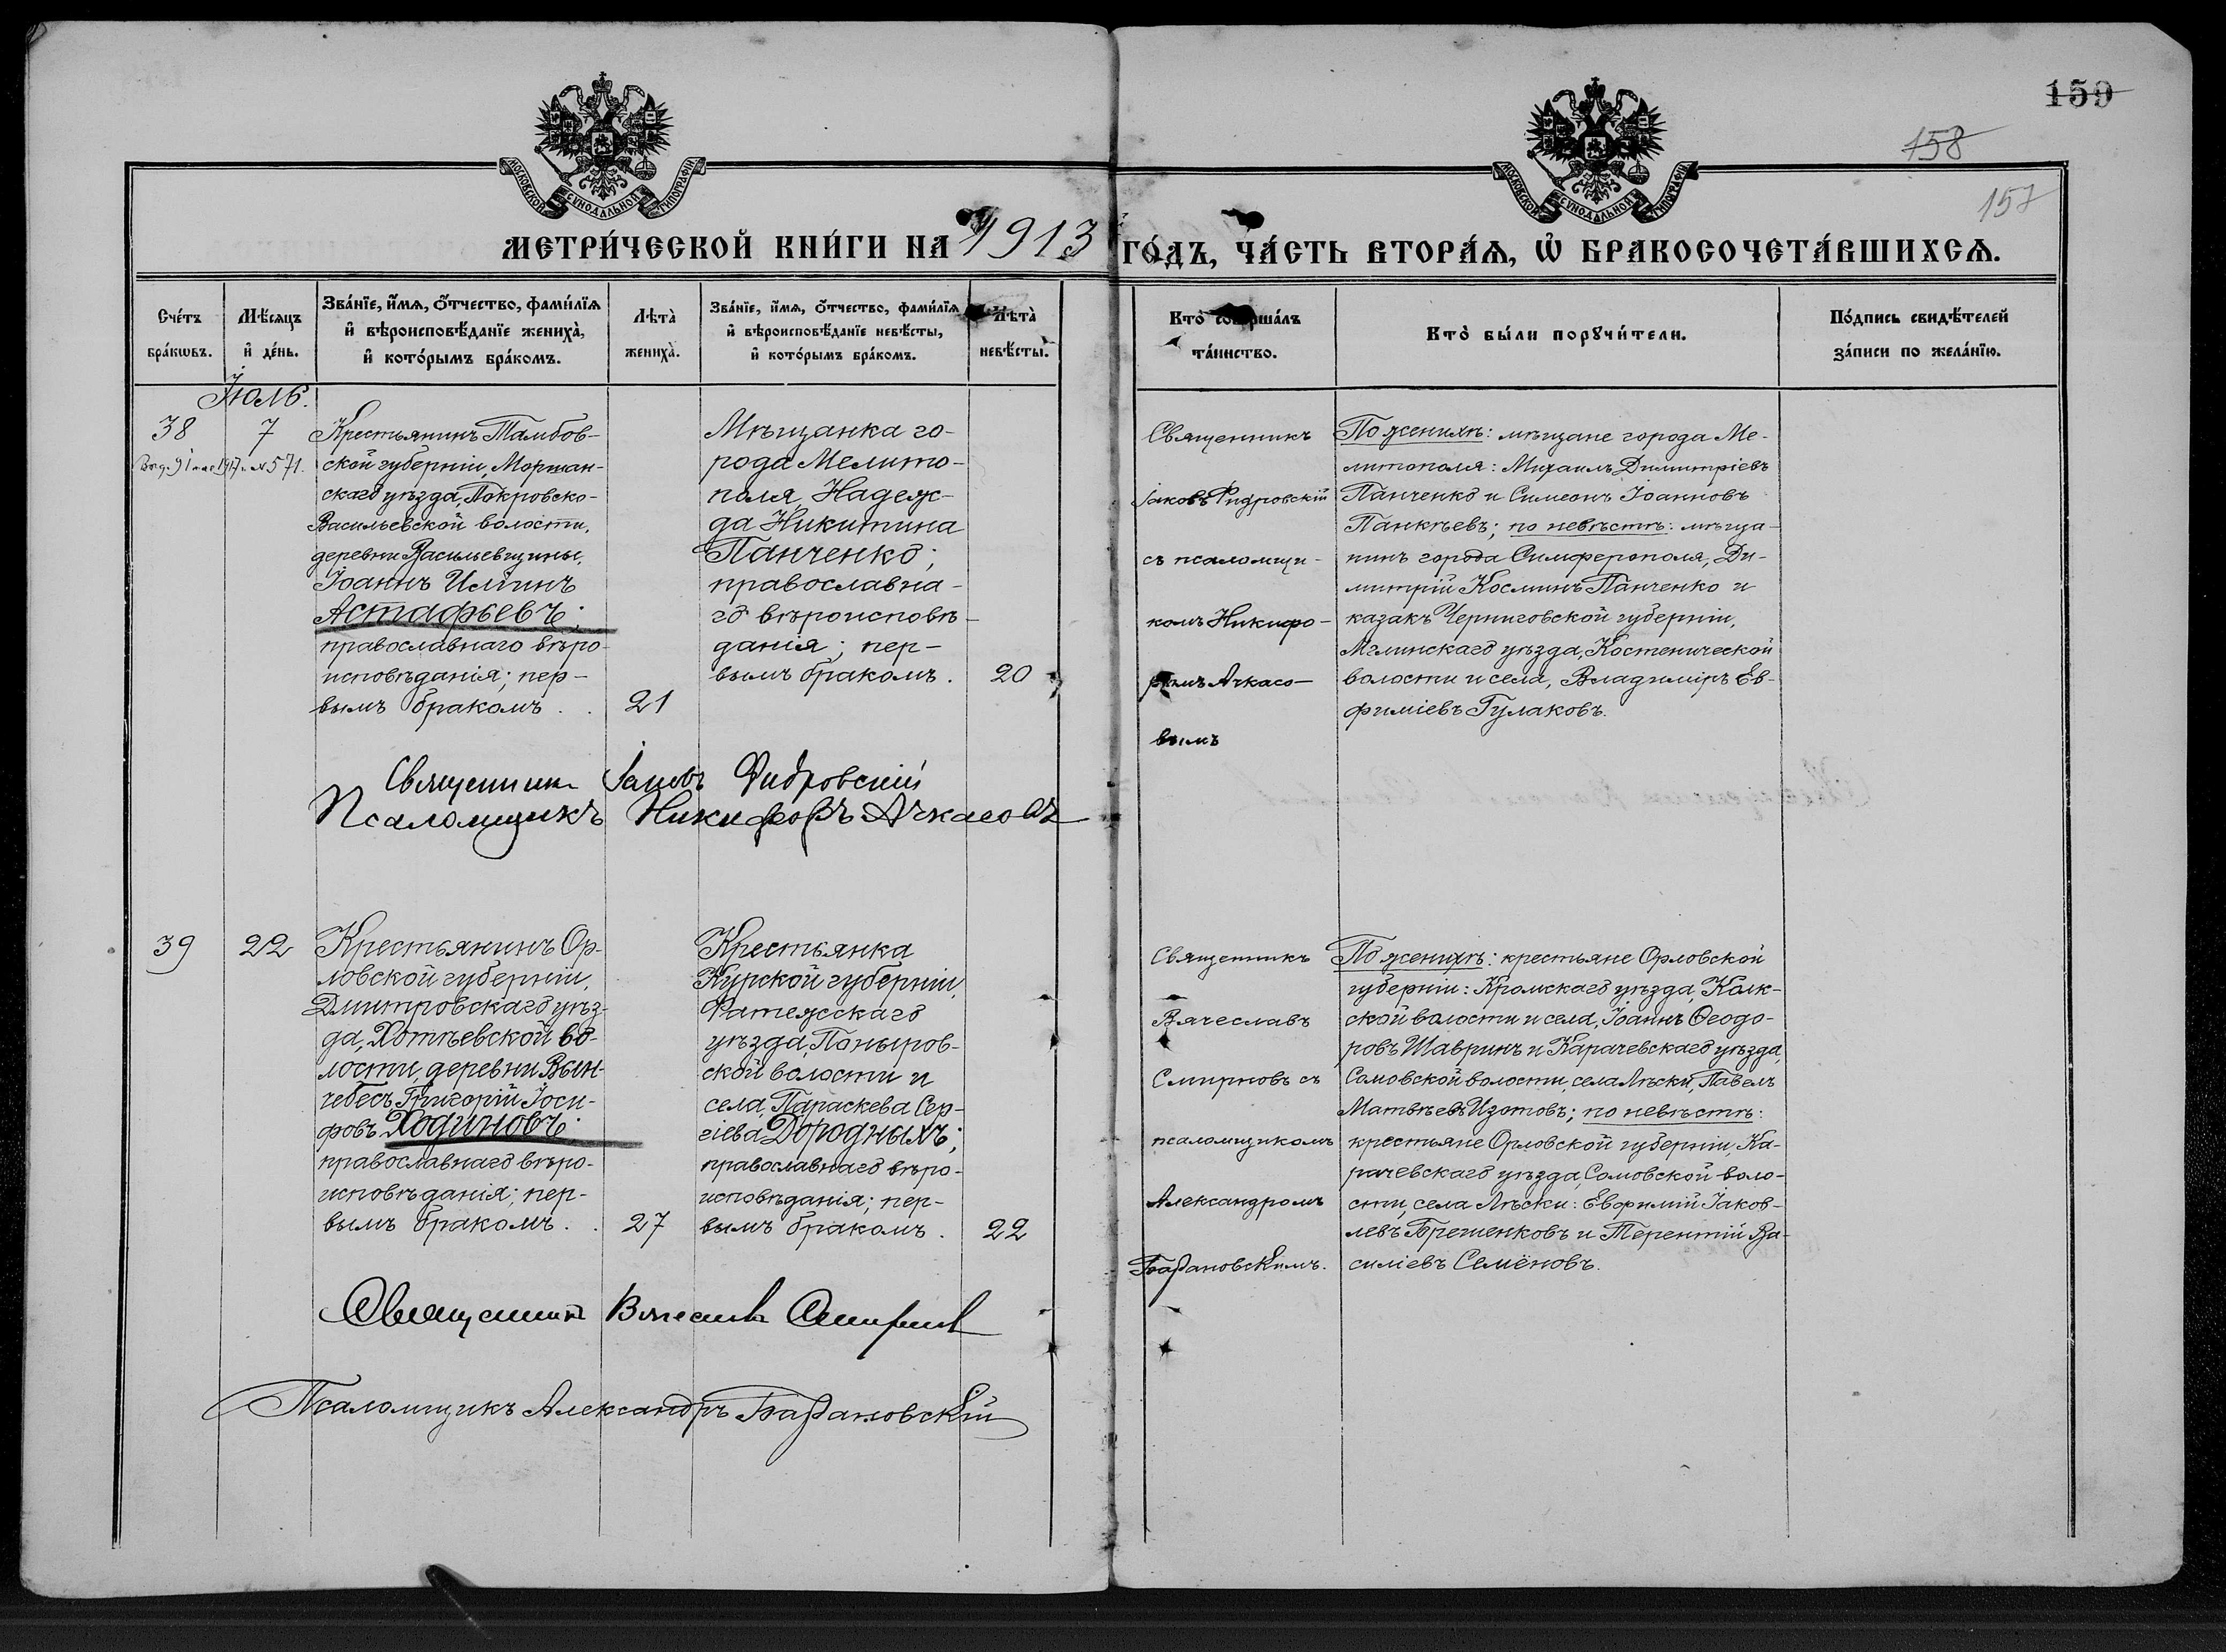 159
158
157
МОСКОВСКОЙ СѴНОДАЛЬНОЙ ТИПОГРАФІИ
МОСКОВСКОЙ СѴНОДАЛЬНОЙ ТИПОГРАФІИ
МЕТРИ́ЧЕСКОЙ КНИ́ГИ НА 1913 ГО́ДЪ, ЧА́СТЬ ВТОРА́Ѧ, Ѽ БРАКОСОЧЕТА́ВШИХСѦ.
Сче́тъ
бра́кωвъ.
Мѣ́сяцъ
и҆ де́нь.
Зва́нїе, и҆́мѧ, ѻ҆́тчество, фами́лїѧ
и҆ вѣроисповѣ́данїе жениха̀,
и҆ кото́рымъ бра́комъ.
Лѣта̀
жениха̀.
Зва́нїе, и҆́мѧ, ѻ҆́тчество, фами́лїѧ
и҆ вѣроисповѣ́данїе невѣ́сты,
и҆ кото́рымъ бра́комъ.
Лѣта̀
невѣ́сты.
Кто̀ соверша́лъ
та́инство.
Кто̀ бы́ли порꙋчи́тели.
По́дпись свидѣ́телей
за́писи по жела́нїю.
Іюль.
38
7
1917 г. № 571.
Крестьянинъ Тамбов-
ской губерніи, Моршан-
скаго уѣзда, Покровско-
Васильевской волости,
деревни Васильевщины,
Іоаннъ Илiинъ
Астафьевъ;
православнаго вѣро-
исповѣданія; пер-
вымъ бракомъ . .
21
Мѣщанка го-
рода Мелито-
поля Надеж-
да Никитина
Панченко;
православна-
го вѣроисповѣ-
данія; пер-
вымъ бракомъ.
20
Священникъ
Іаковъ
съ псаломщи-
комъ Никифо-
ромъ Ачкасо-
вымъ
По женихѣ: мѣщане города Ме-
литополя: Михаилъ Димитріевъ
Панченко и Симеонъ Іоанновъ
Панкѣевъ; по невѣстѣ: мѣща-
нинъ города Симферополя, Ди-
митрій Косминъ Панченко и
казакъ Черниговской губерніи,
Мглинскаго уѣзда, Костенической
волости и села, Владиміръ Ев-
фиміевъ Гулаковъ.
Священникъ Іаковъ
Псаломщикъ Никифоръ Ачкасовъ
39
22
Крестьянинъ Ор-
ловской губерніи,
Дмитровскаго уѣз-
да, Хотѣевской во-
лости, деревни Вын-
чебесъ, Григорій Іоси-
фовъ Ходиновъ;
православнаго вѣро-
исповѣданія; пер-
вымъ бракомъ. .
27
Крестьянка
Курской губерніи,
Фатежскаго
уѣзда, Поныров-
ской волости и
села, Параскева Сер-
гіева Дородныхъ;
православнаго вѣро-
исповѣданія; пер-
вымъ бракомъ.
22
Священникъ
Вячеславъ
Смирновъ съ
псаломщикомъ
Александромъ
По женихѣ: крестьяне Орловской
губерніи: Кромскаго уѣзда, Колк-
ской волости и села, Іоаннъ Ѳеодо-
ровъ Шавринъ и Карачевскаго уѣзда,
Самовской волости, села Лѣски, Павелъ
Матвѣевъ Изотовъ; по невѣстѣ:
крестьяне Орловской губерніи, Ка-
рачевскаго уѣзда, Самовской воло-
сти, села Лѣски: Евфимій Іаков-
левъ Брешенковъ и Терентій Ва-
силіевъ Семёновъ.
Священникъ Вячеславъ Смирновъ
Псаломщикъ Александръ